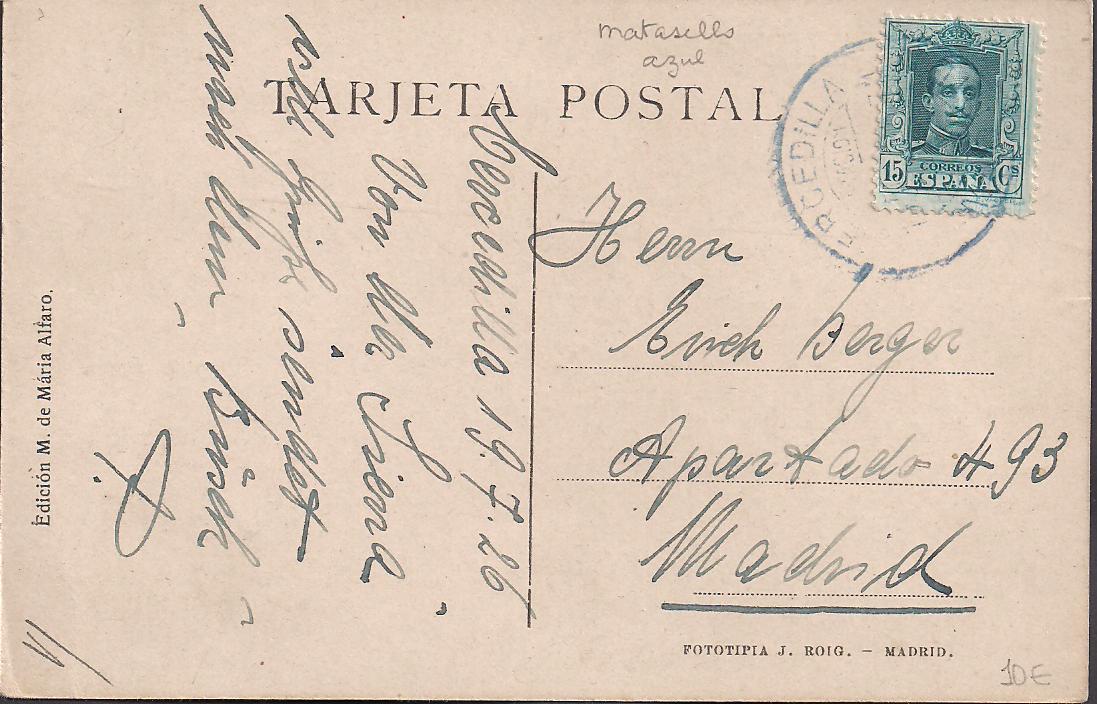 matasello
azul
TARJETA POSTAL
CERCEDILLA
15 CORREOS Cs
ESPAÑA
Cercedilla 19.7.26
Von der Siena
viele Grüße sendet
Herrn
Erich Berger
Apartado 493
Madrid
Edición M. de María Alfaro.
FOTOTIPIA J. ROIG. — MADRID.
10 €